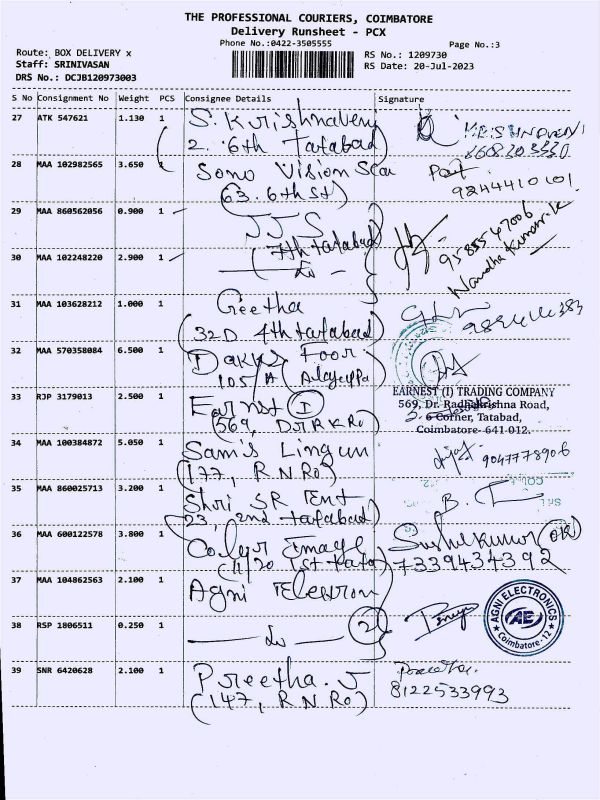 THE PROFESSIONAL COURIERS, COIMBATORE
Delivery Runsheet - PCX
Phone No.:0422-3505555
Page No.:3
Route: BOX DELIVERY x
Staff: SRINIVASAN
DRS No.: DCJB120973003
RS No.: 1209730
RS Date: 20-Jul-2023
S No Consignment No Weight PCS Consignee Details Signature
27 ATK 547621 1.130 1 S. Krishnaveny
2. 6th Tatabad)
28 MAA 102982565 3.650 Sono Vision Star
(63. 6th St)
9244410101
29 MAA 860562056 0.900 1 JJS
7th tatabad
30 MAA 102248220 2.900 1
9585547006
Nandha Kumar.K
31 MAA 103628212 1.000 1 Geetha
(32D 4th tatabad)
32 MAA 570358084 6.500 1
105/A
33 RJP 3179013 2.500 1 Earnst (I)
(569, Dr R K Ro)
EARNEST (I) TRADING COMPANY
569, Dr. Radhakrishna Road,
6 Corner, Tatabad,
Coimbatore- 641 012.
34 MAA 100384872 5.050 1 Sam's Lingun
(177, R N Ro)
9047778906
35 MAA 860025713 3.200 1 Shri SR Tent
23, 2nd tatabad)
36 MAA 600122578 3.800 1
Sushilkumar
7339434392
37 MAA 104862563 2.100 1 Agni Elektron
38 RSP 1806511 0.250 1 2
AGNI ELECTRONICS
AE
Coimbatore - 12
39 SNR 6420628 2.100 1 Preetha. J
(147, R N Ro)
8122533993